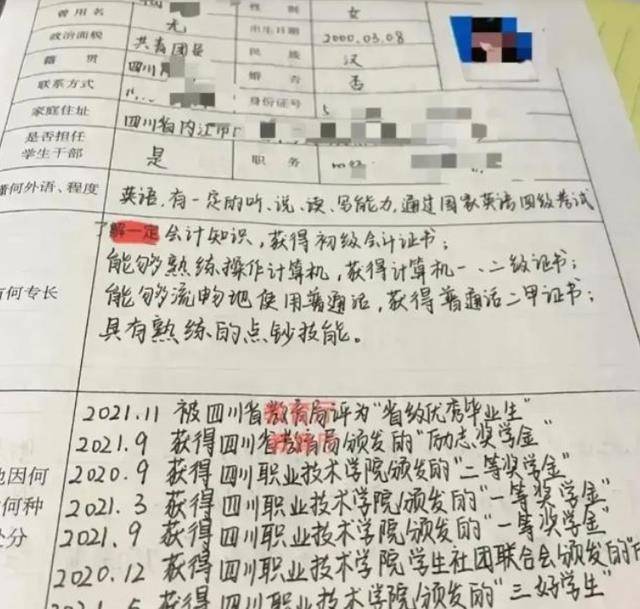 曾用名 无 性别 女
出生日期 2000.03.08
政治面貌 共青团员 民族 汉
籍贯 四川 婚否 否
联系方式 身份证号 5
家庭住址 四川省内江市
是否担任学生干部 是 职务
懂何外语、程度 英语，有一定的听、说、读、写能力，通过国家英语四级考试
有何专长 了解一定会计知识，获得初级会计证书；
能够熟练操作计算机，获得计算机一、二级证书；
能够流畅地使用普通话，获得普通话二甲证书；
具有熟练的点钞技能。
2021.11 被四川省教育厅评为“省级优秀毕业生”
2021.9 获得四川省教育厅颁发的“励志奖学金”
地因何 2020.9 获得四川职业技术学院颁发的“二等奖学金”
何种 2021.3 获得四川职业技术学院颁发的“一等奖学金”
处分 2021.9 获得四川职业技术学院颁发的“一等奖学金”
2020.12 获得四川职业技术学院学生社团联合会颁发的“
2021.5 获得四川职业技术学院颁发的“三好学生”